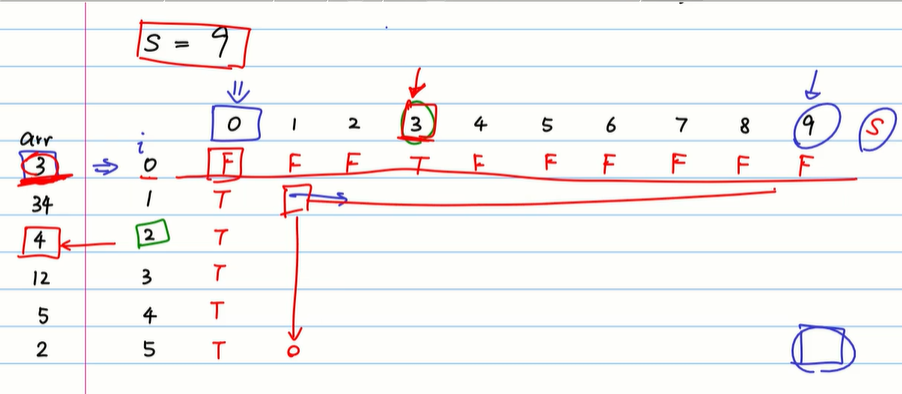 S = 9
0 1 2 3 4 5 6 7 8 9 S
arr i
3 ⇒ 0 F F F T F F F F F F
34 1 T
4 2 T
12 3 T
5 4 T
2 5 T 0